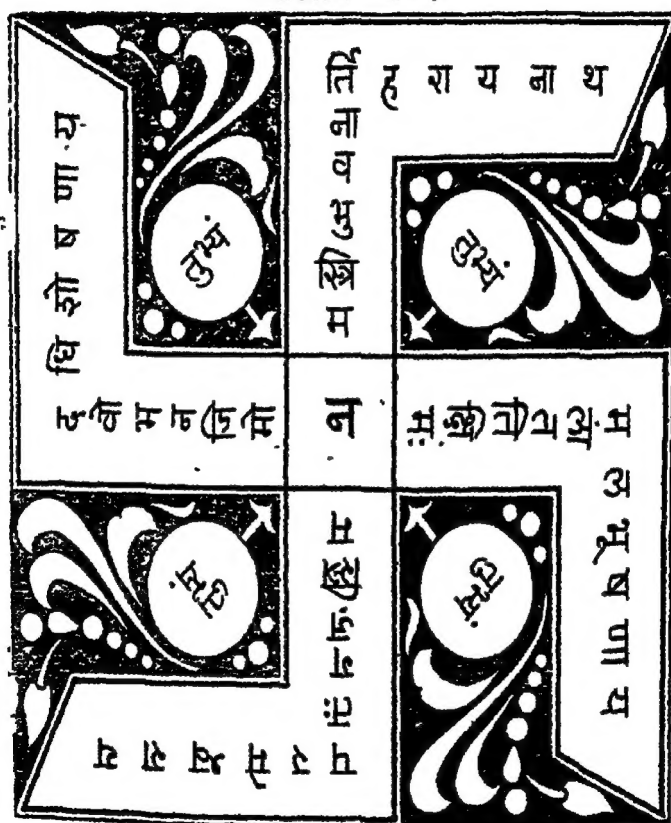 तुभ्यं
न
म स्त्रि भु व ना र्ति ह रा य ना थ
तुभ्यं
मः क्षि ति त ला म ल भू ष णा य
तुभ्यं
म स्त्रि ज ग तः प र मे श्व रा य
तुभ्यं
मो जि न भ वो द धि शो ष णा य